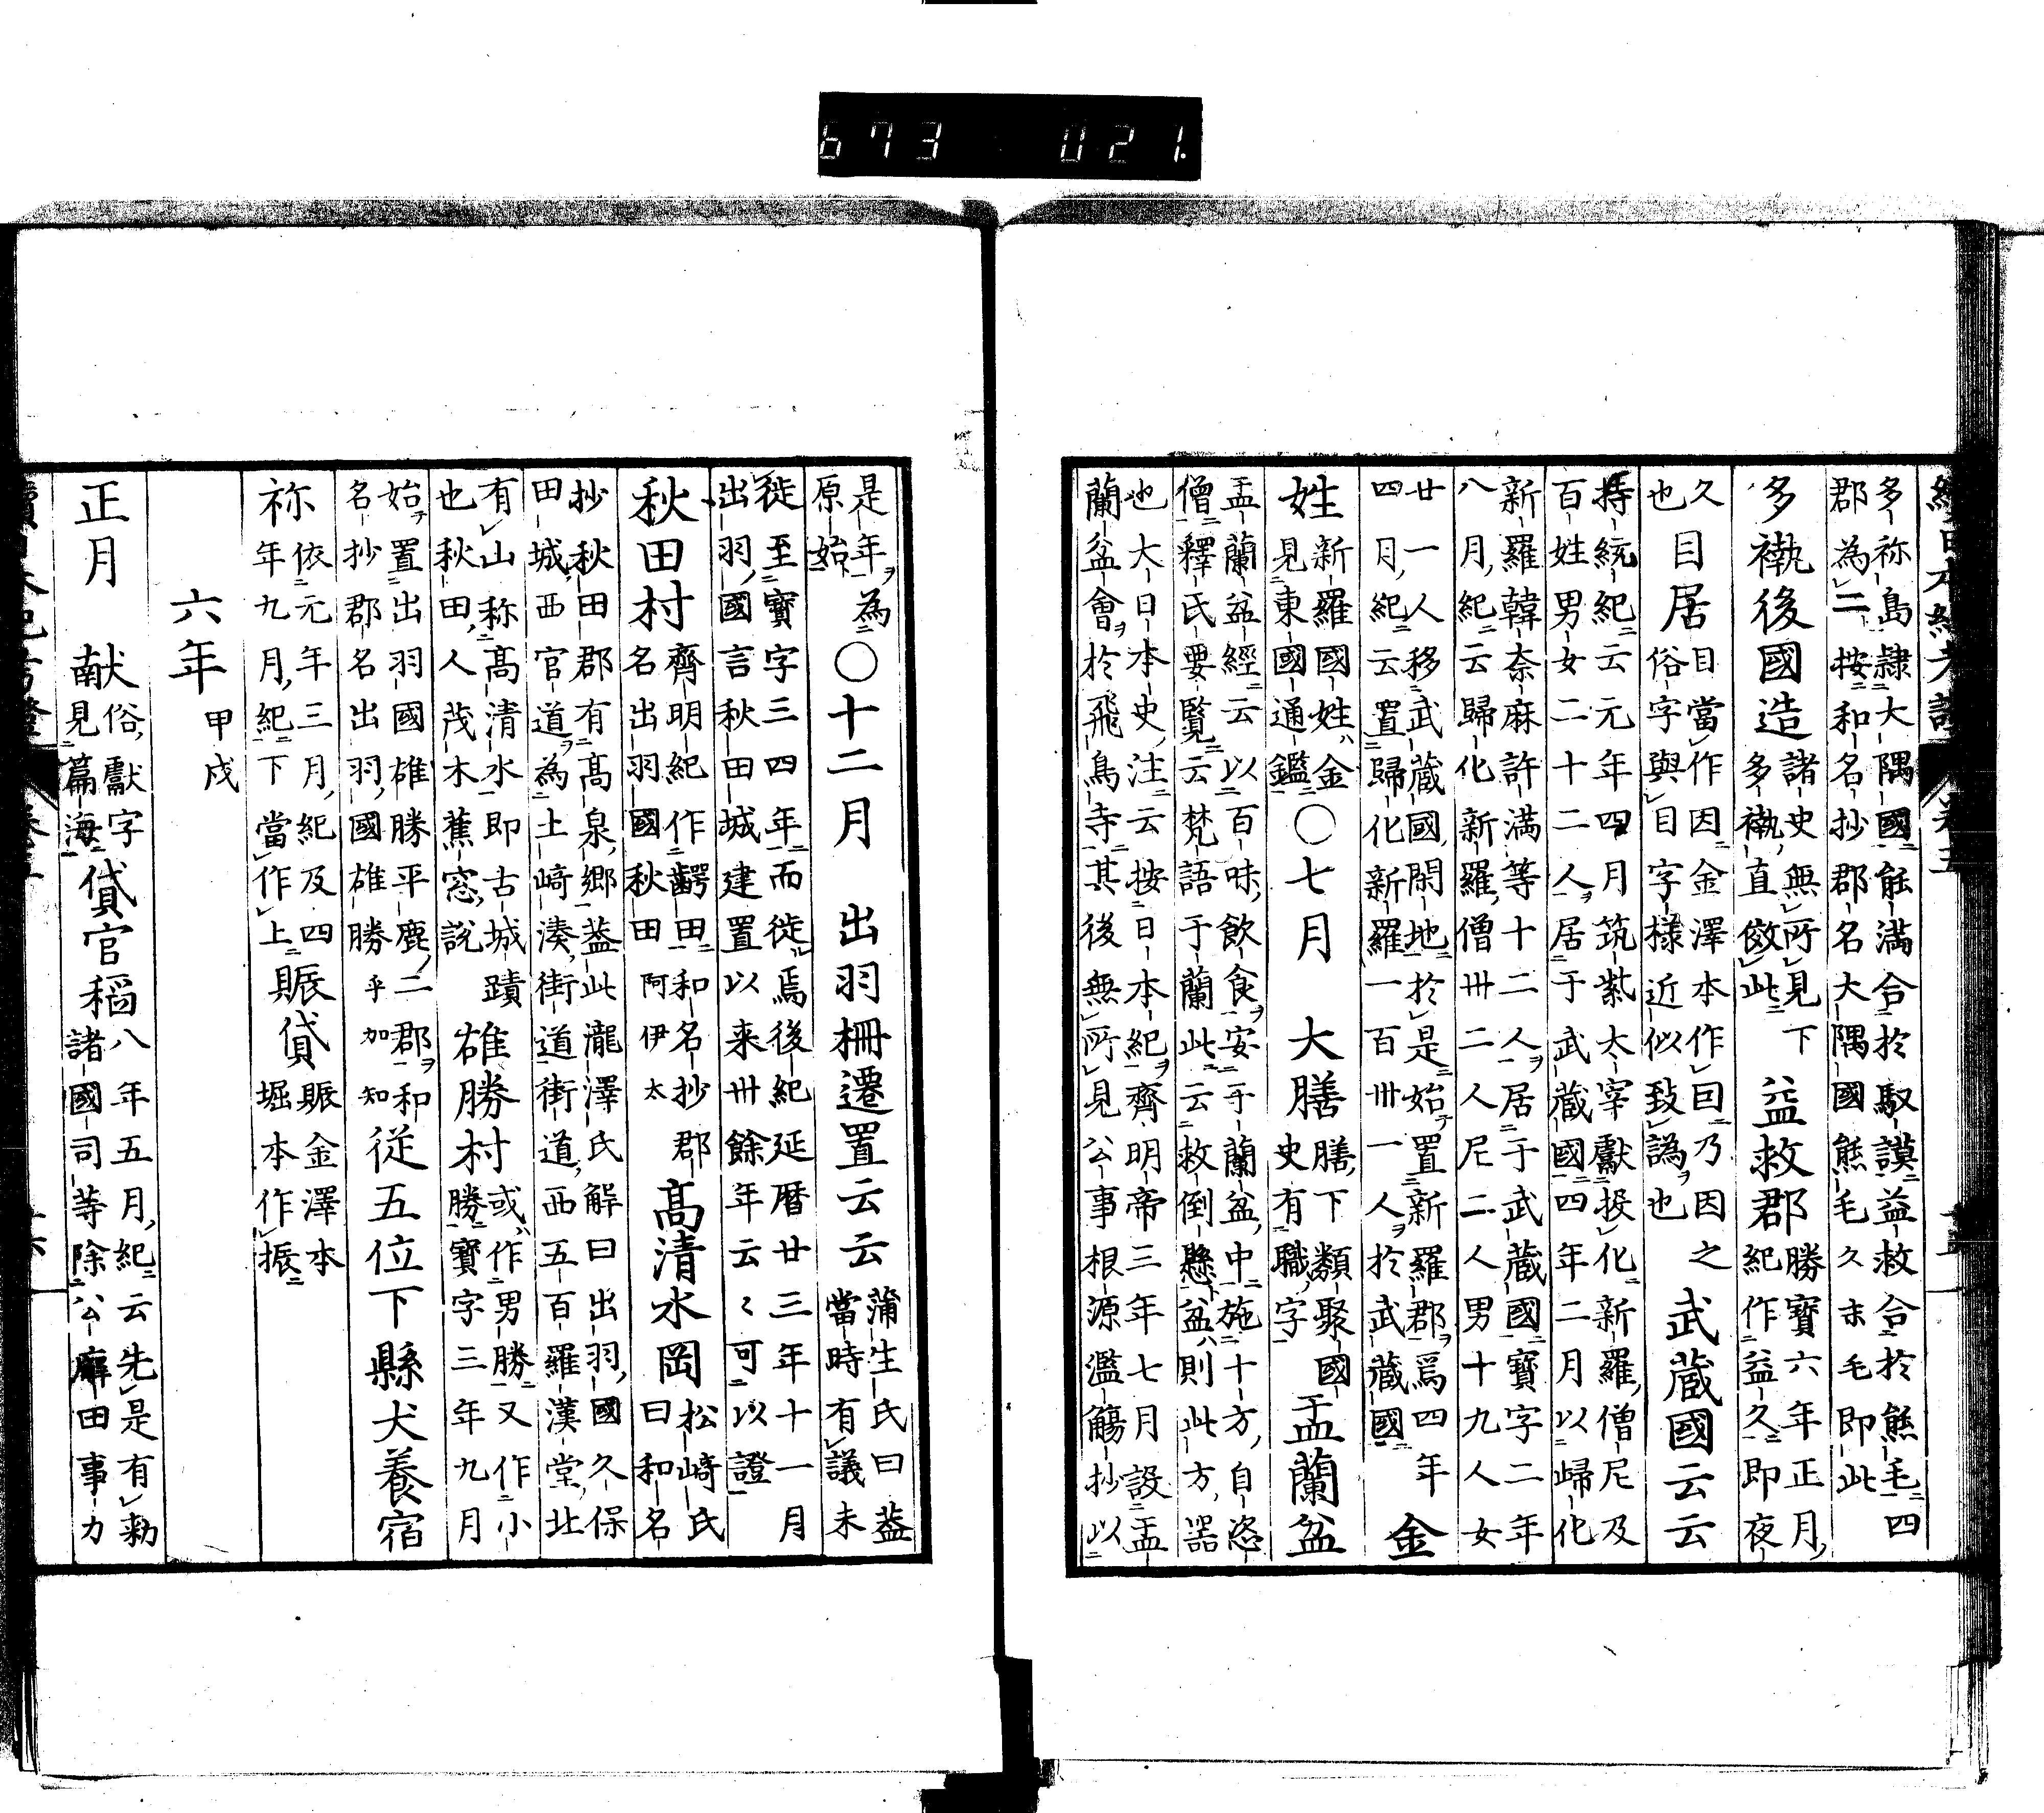 673 021.
多祢島隷大隅國能満合於馭謨益救合於熊毛四
郡為二按和名抄郡名大隅國熊毛久末毛即此
多褹後國造諸史無所見下
多褹直倣此益救郡勝寶六年正月
紀作益久即夜
久
也目居目當作因金澤本作囙乃因之
俗字與目字様近似致譌也武蔵國云云
持統紀云元年四月筑紫太宰獻投化新羅僧尼及
百姓男女二十二人居于武蔵國四年二月以歸化
新羅韓奈麻許満等十二人居于武蔵國寶字二年
八月紀云歸化新羅僧卅二人尼二人男十九人女
廿一人移武蔵國閑地於是始置新羅郡焉四年
四月紀云置歸化新羅一百卅一人於武蔵國金
姓新羅國姓金
見東國通鑑〇七月 大膳膳下類聚國
史有職字盂蘭盆
盂蘭盆經云以百味飲食安于蘭盆中施十方自恣
僧釋氏要覽云梵語于蘭此云救倒懸盆則此方器
也大日本史注云按日本紀齊明帝三年七月設盂
蘭盆會於飛鳥寺其後無所見公事根源濫觴抄以
是年為
原始〇十二月 出羽柵遷置云云蒲生氏曰蓋
當時有議未
徙至寶字三四年而徙焉後紀延暦廿三年十一月
出羽國言秋田城建置以来卌餘年云〻可以證
秋田村齊明紀作齶田和名抄郡
名出羽國秋田阿伊太高清水岡松﨑氏
曰和名
抄秋田郡有高泉郷蓋此瀧澤氏解曰出羽國久保
田城西官道為土﨑湊街道街道西五百羅漢堂北
有山称高清水即古城蹟
也秋田人茂木蕉窓説雄勝村或作男勝又作小
勝寶字三年九月
始置出羽國雄勝平鹿二郡和
名抄郡名出羽國雄勝乎加知従五位下縣犬養宿
祢依元年三月紀及四
年九月紀下當作上賑貸賑金澤本
堀本作振
六年甲戌
正月 献俗獻字
見篇海貸官稲八年五月紀云先是有勅
諸國司等除公廨田事力